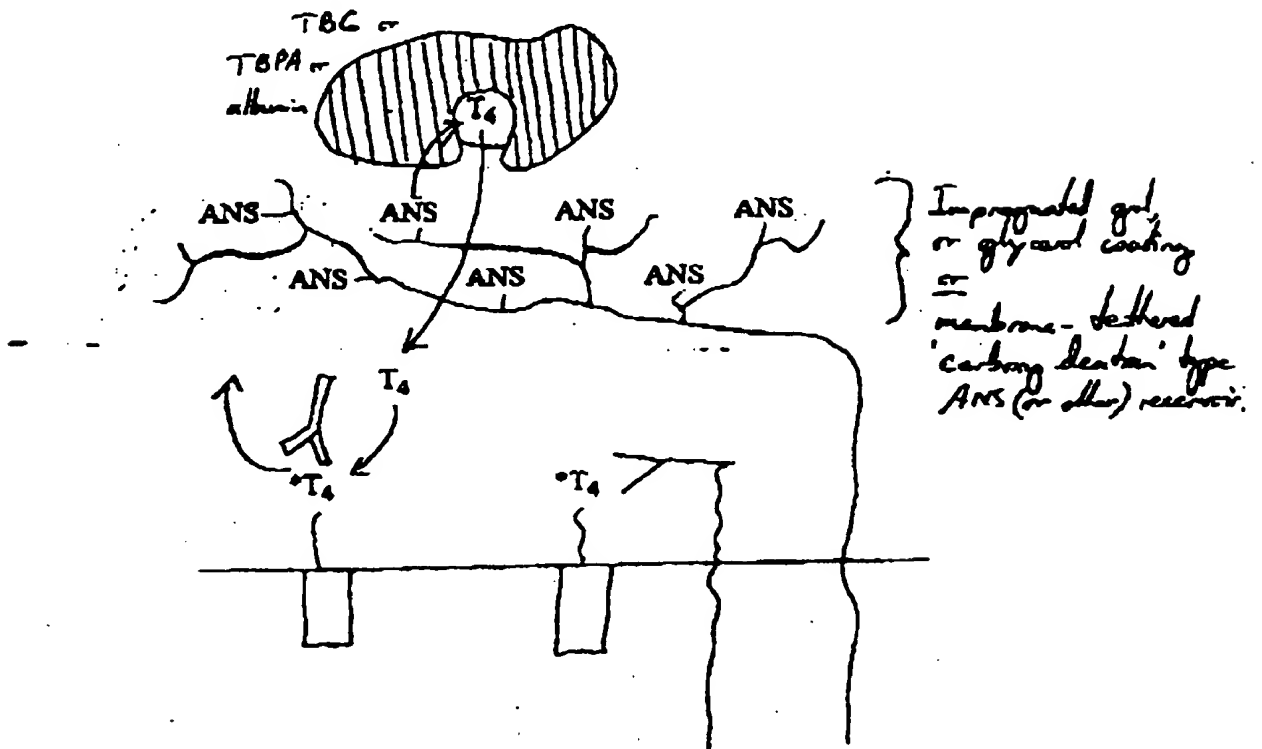 TBG or
TBPA or
albumin
T4
ANS ANS ANS ANS
ANS ANS ANS
Impregnated gel,
or glycerol coating
or
membrane-tethered
'carboxy dextran' type
ANS (or other) reservoir.
T4
*T4
*T4